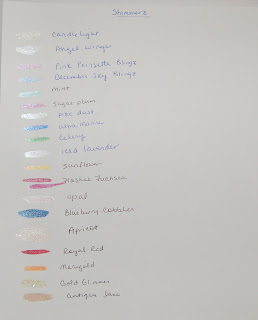 Shimmerz
Candlelight
Angel Wings
Pink Prinsetta Blingz
December Sky Blingz
Mint
Sugar plum
Pixe dust
Ultra Marine
Iced Lavender
Sunflower
Flashee Fuchsea
Opal
Blueberry Cobbler
Apricot
Royal Red
Marigold
Gold Glimmer
Antique Lace